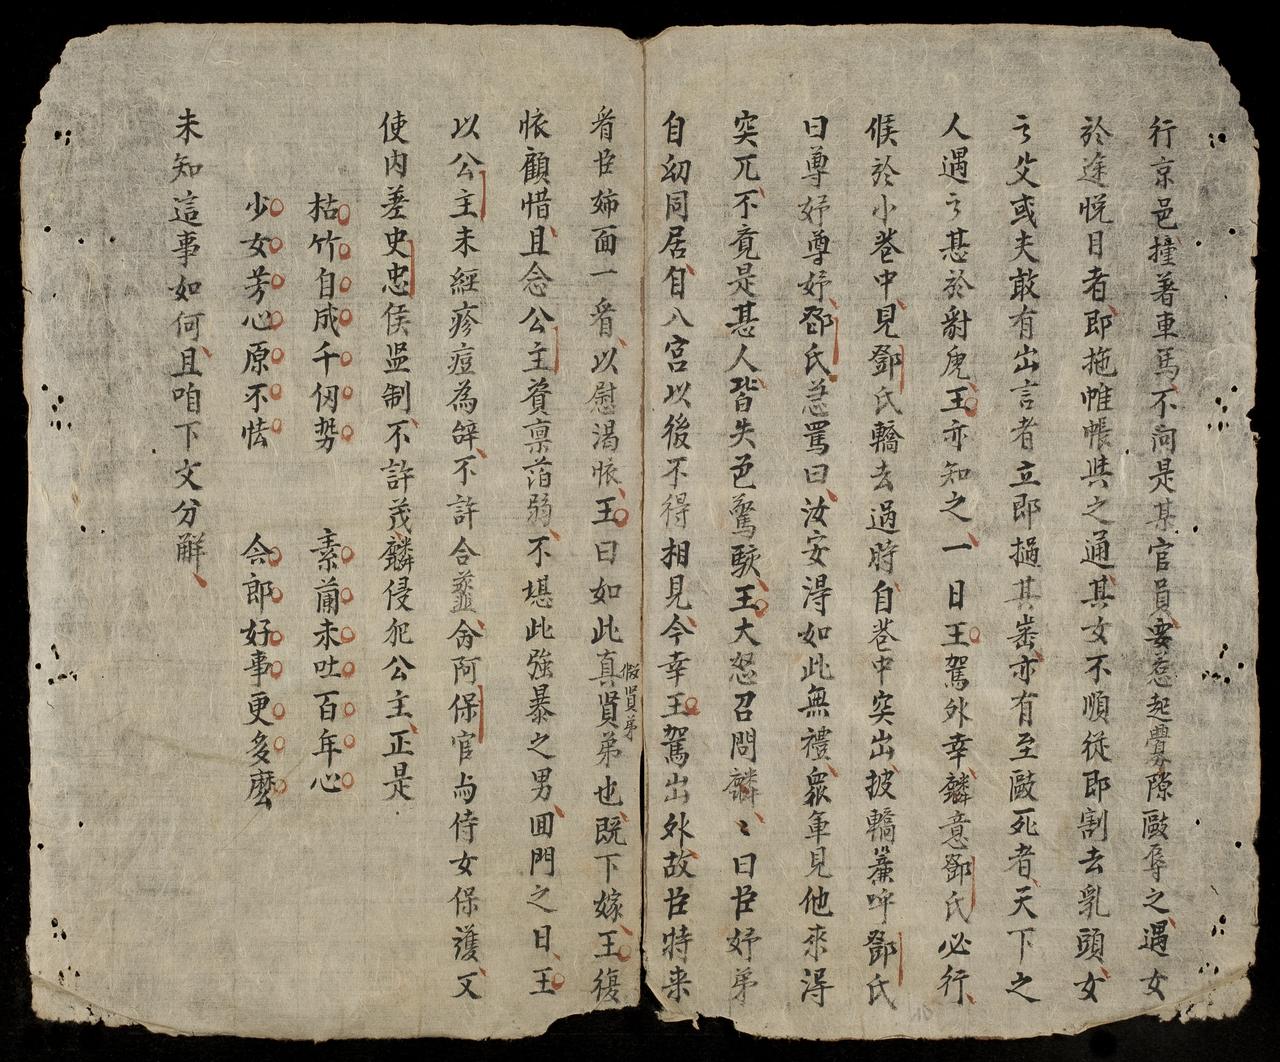 行京邑撞著車馬不問是某官員要惹起釁隙毆辱之遇女
於途悅目者即拖帷帳與之通其女不順從即割去乳頭女
之父或夫敢有出言者立即撾其齒亦有至毆死者天下之
人遇之甚於豺虎王亦知之一日王駕外幸麟意鄧氏必行
候於小巷中見鄧氏轎去過時自巷中突出披轎簾呼鄧氏
曰尊妤尊妤鄧氏急罵曰汝安得如此無禮衆軍見他來得
突兀不竟是甚人皆失色驚駭王大怒召問麟〻曰臣妤弟
自幼同居自入宮以後不得相見今幸王駕出外故臣特来
看臣姉面一看以慰渴悵王曰如此真賢弟也既下嫁王復
假賢弟
悵顧惜且念公主資禀菭弱不堪此強暴之男囬門之日王
以公主未經疹痘為辞不許合巹命阿保官与侍女保護又
使内差史忠侯监制不許茂麟侵犯公主正是
枯竹自成千仞势 素蘭未吐百年心
少女芳心原不怯 会郎好事更多麽
未知這事如何且咱下文分解